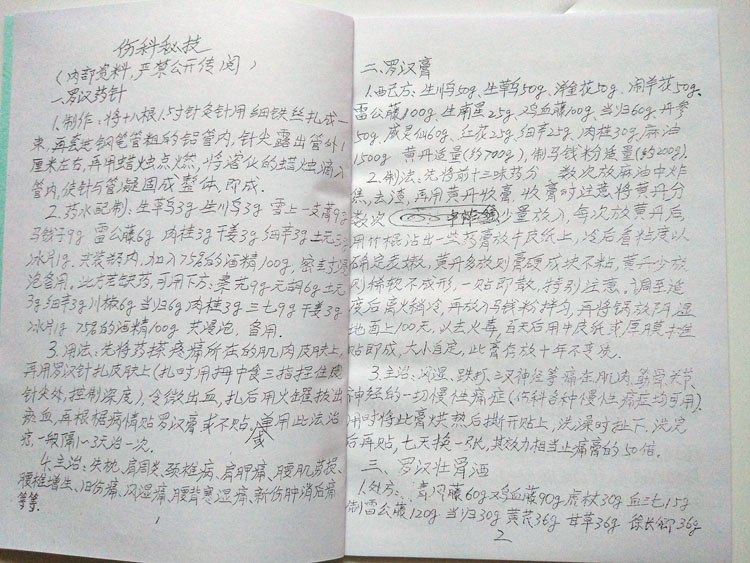 伤科秘技
（内部资料，严禁公开传阅）
一.罗汉药针
1.制作：将十八根1.5寸针灸针用细铁丝扎成一
束，再套进钢笔管粗的铝管内，针尖露出管外1
厘米左右，再用蜡烛点燃，将溶化的蜡烛滴入
管内，使针与管凝固成整体，即成.
2.药水配制：生草乌3g 生川乌3g 雪上一支蒿9g
马钱子9g 雷公藤6g 肉桂3g 干姜3g 细辛3g 土元3g
冰片1g. 共装瓶内，加入75%的酒精100g，密封浸
泡备用. 此方若缺药，可用下方：秦艽9g 元胡6g 土元
3g 细辛3g 川椒6g 当归6g 肉桂3g 三七9g 干姜3g
冰片1g 75%的酒精100g 共浸泡，备用.
3.用法：先将药搽疼痛所在的肌肉皮肤上，
再用罗汉针扎皮肤上（扎时用拇中食三指捏住皮
针尖处，控制深度），令微出血，扎后用火罐拔出
瘀血，再根据病情贴罗汉膏或不贴，单用此法治
疗. 一般隔1~3天治一次.
4.主治：失枕、肩周炎、颈椎病、肩胛痛、腰肌劳损、
腰椎增生、旧伤痛、风湿痛、腰背寒湿痛、新伤肿消后痛
等等.
1
二.罗汉膏
1.西尼方：生川乌50g、生草乌50g、洋金花50g、闹羊花50g、
雷公藤100g、生南星25g、鸡血藤100g、当归60g、丹参
50g、威灵仙60g、红花25g、细辛25g、肉桂30g、麻油
1500g 黄丹适量（约700g），制马钱粉适量（约200g）.
2.制法：先将前十三味药分数次放麻油中炸
焦，去渣，再用黄丹收膏，收膏时注意将黄丹分
数次少量放入，每次放黄丹后
用竹棍沾出一些药膏放牛皮纸上，冷后看粘度以
确定老嫩，黄丹多放则膏硬成块不粘，黄丹少放
则稀软不成形，一贴即散，特别注意. 调至适
度后离火稍冷，再放入马钱粉拌匀，再将锅放阴湿
地面上100天，以去火毒，百天后用牛皮纸或厚膜摊
贴即成，大小自定，此膏存放十年不变质.
3.主治：风湿、跌打、三叉神经等痛在肌肉、筋骨、关节、
神经的一切慢性痛症（伤科各种慢性痛症均可用）.
用时将此膏烘热后撕开贴上，洗澡时扯下，洗完
后再贴，七天换一张，其效力相当止痛膏的50倍.
三、罗汉壮骨酒
1.处方：青风藤60g 鸡血藤90g 虎杖30g 血三七15g
制雷公藤120g 当归30g 黄芪36g 甘草36g 徐长卿36g
2